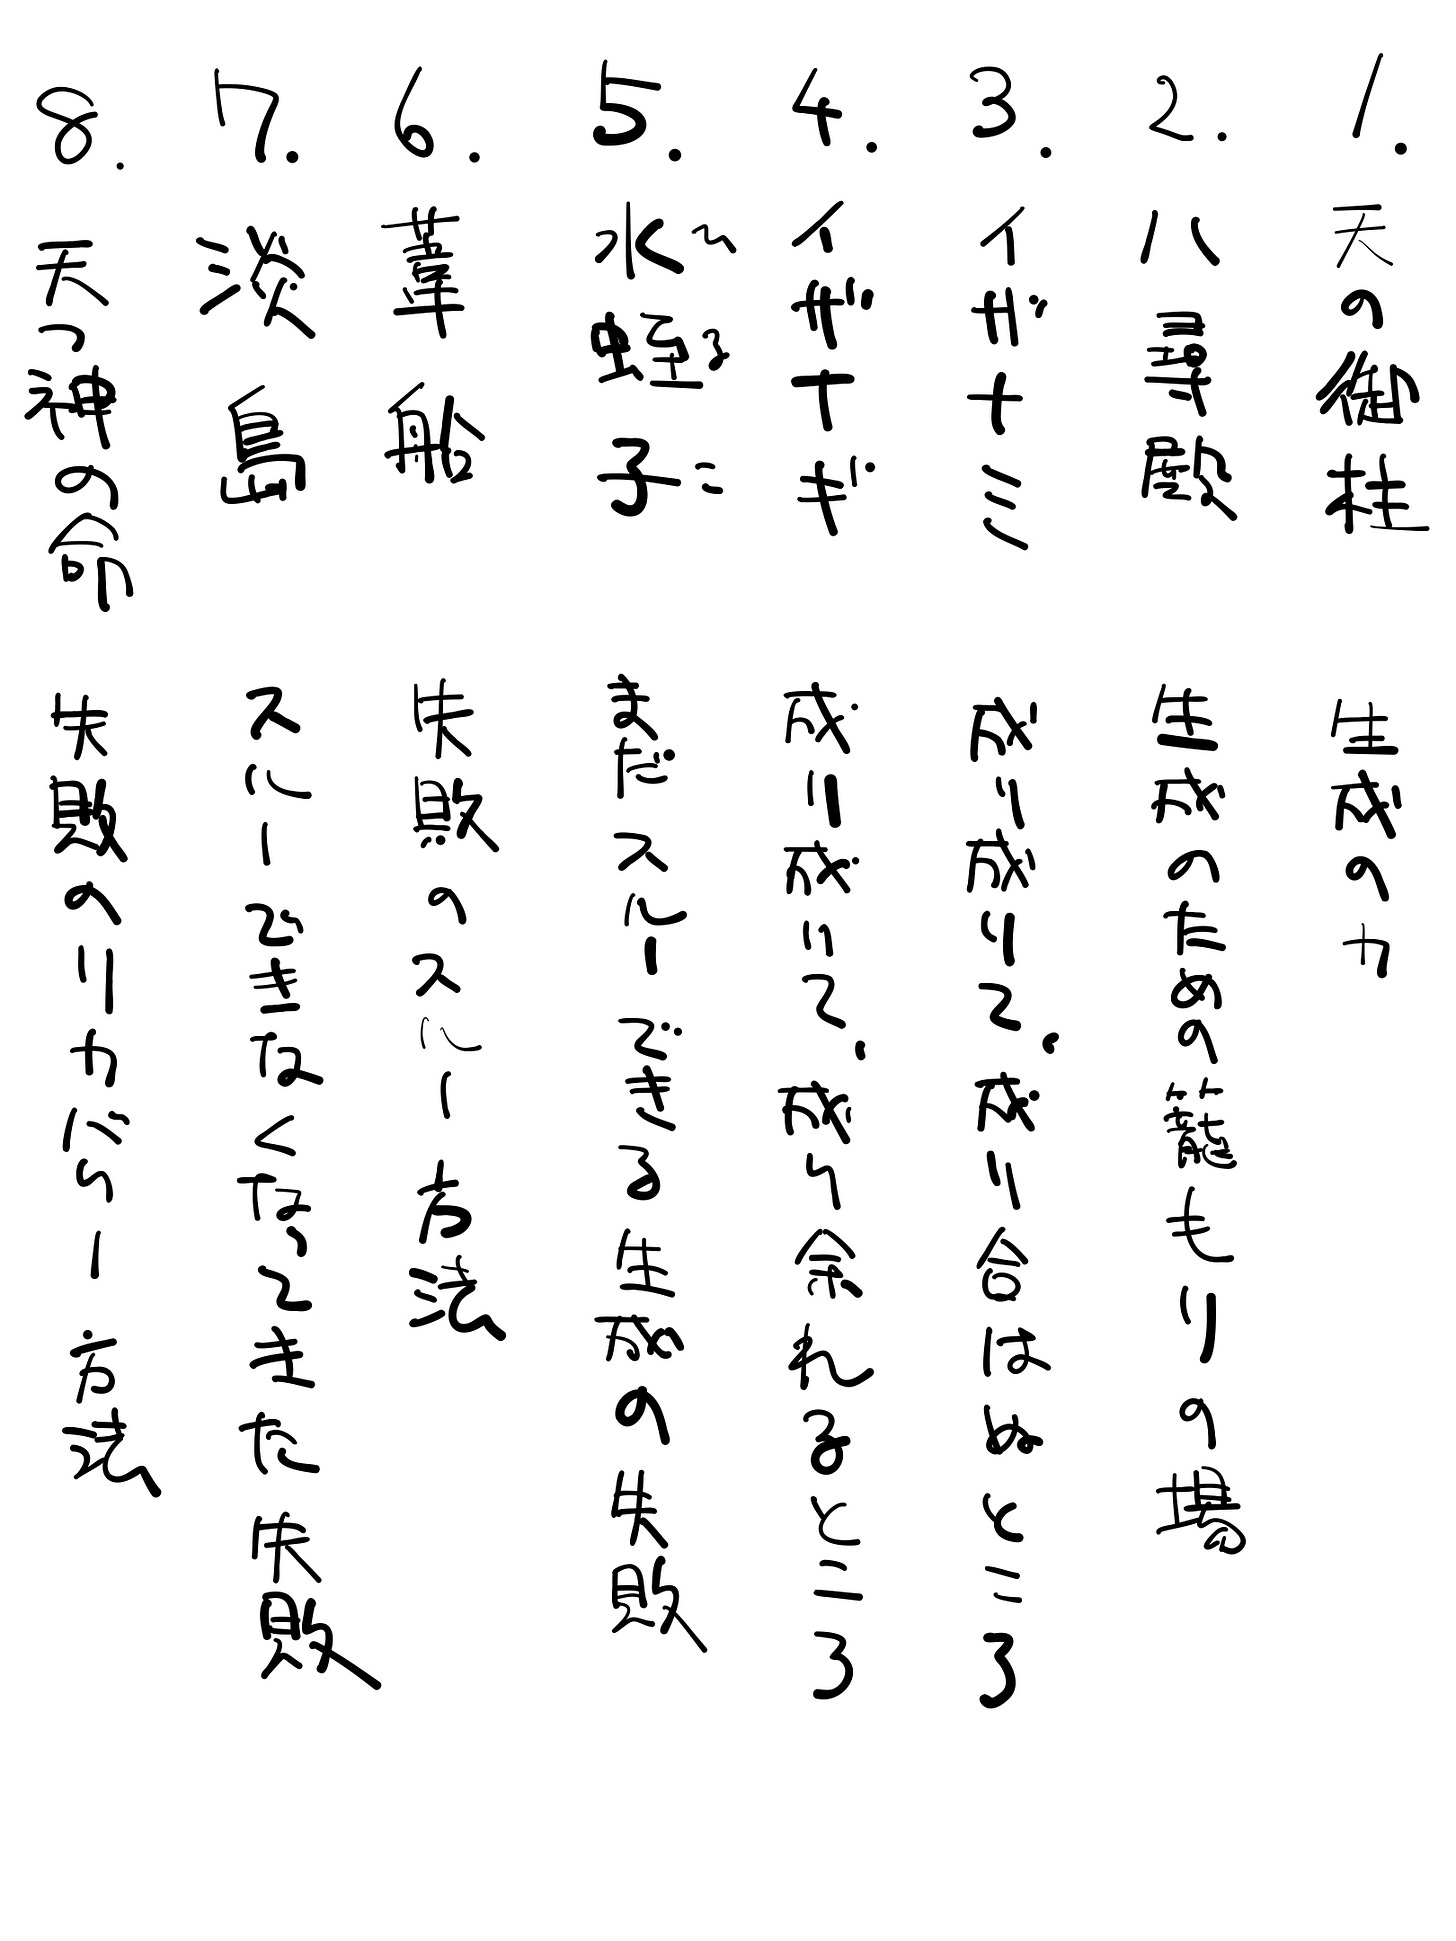 1. 天の御柱 生成の力
2. 八尋殿 生成のための籠もりの場
3. イザナミ 成り成りて、成り合はぬところ
4. イザナギ 成り成りて、成り余れるところ
5. 水蛭子 ひるこ まだスルーできる生成の失敗
6. 葦船 失敗のスルー方法
7. 淡島 スルーできなくなってきた失敗
8. 天つ神の命 失敗のリカバリー方法